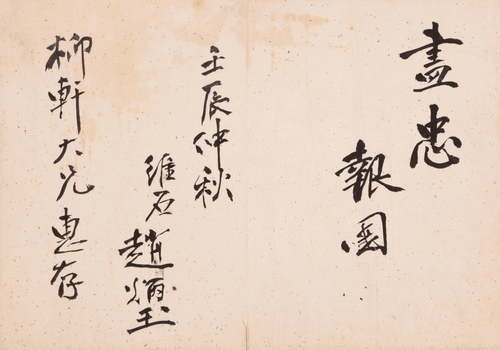 盡忠
報國
壬辰仲秋
維石 趙炳玉
柳軒大兄惠存